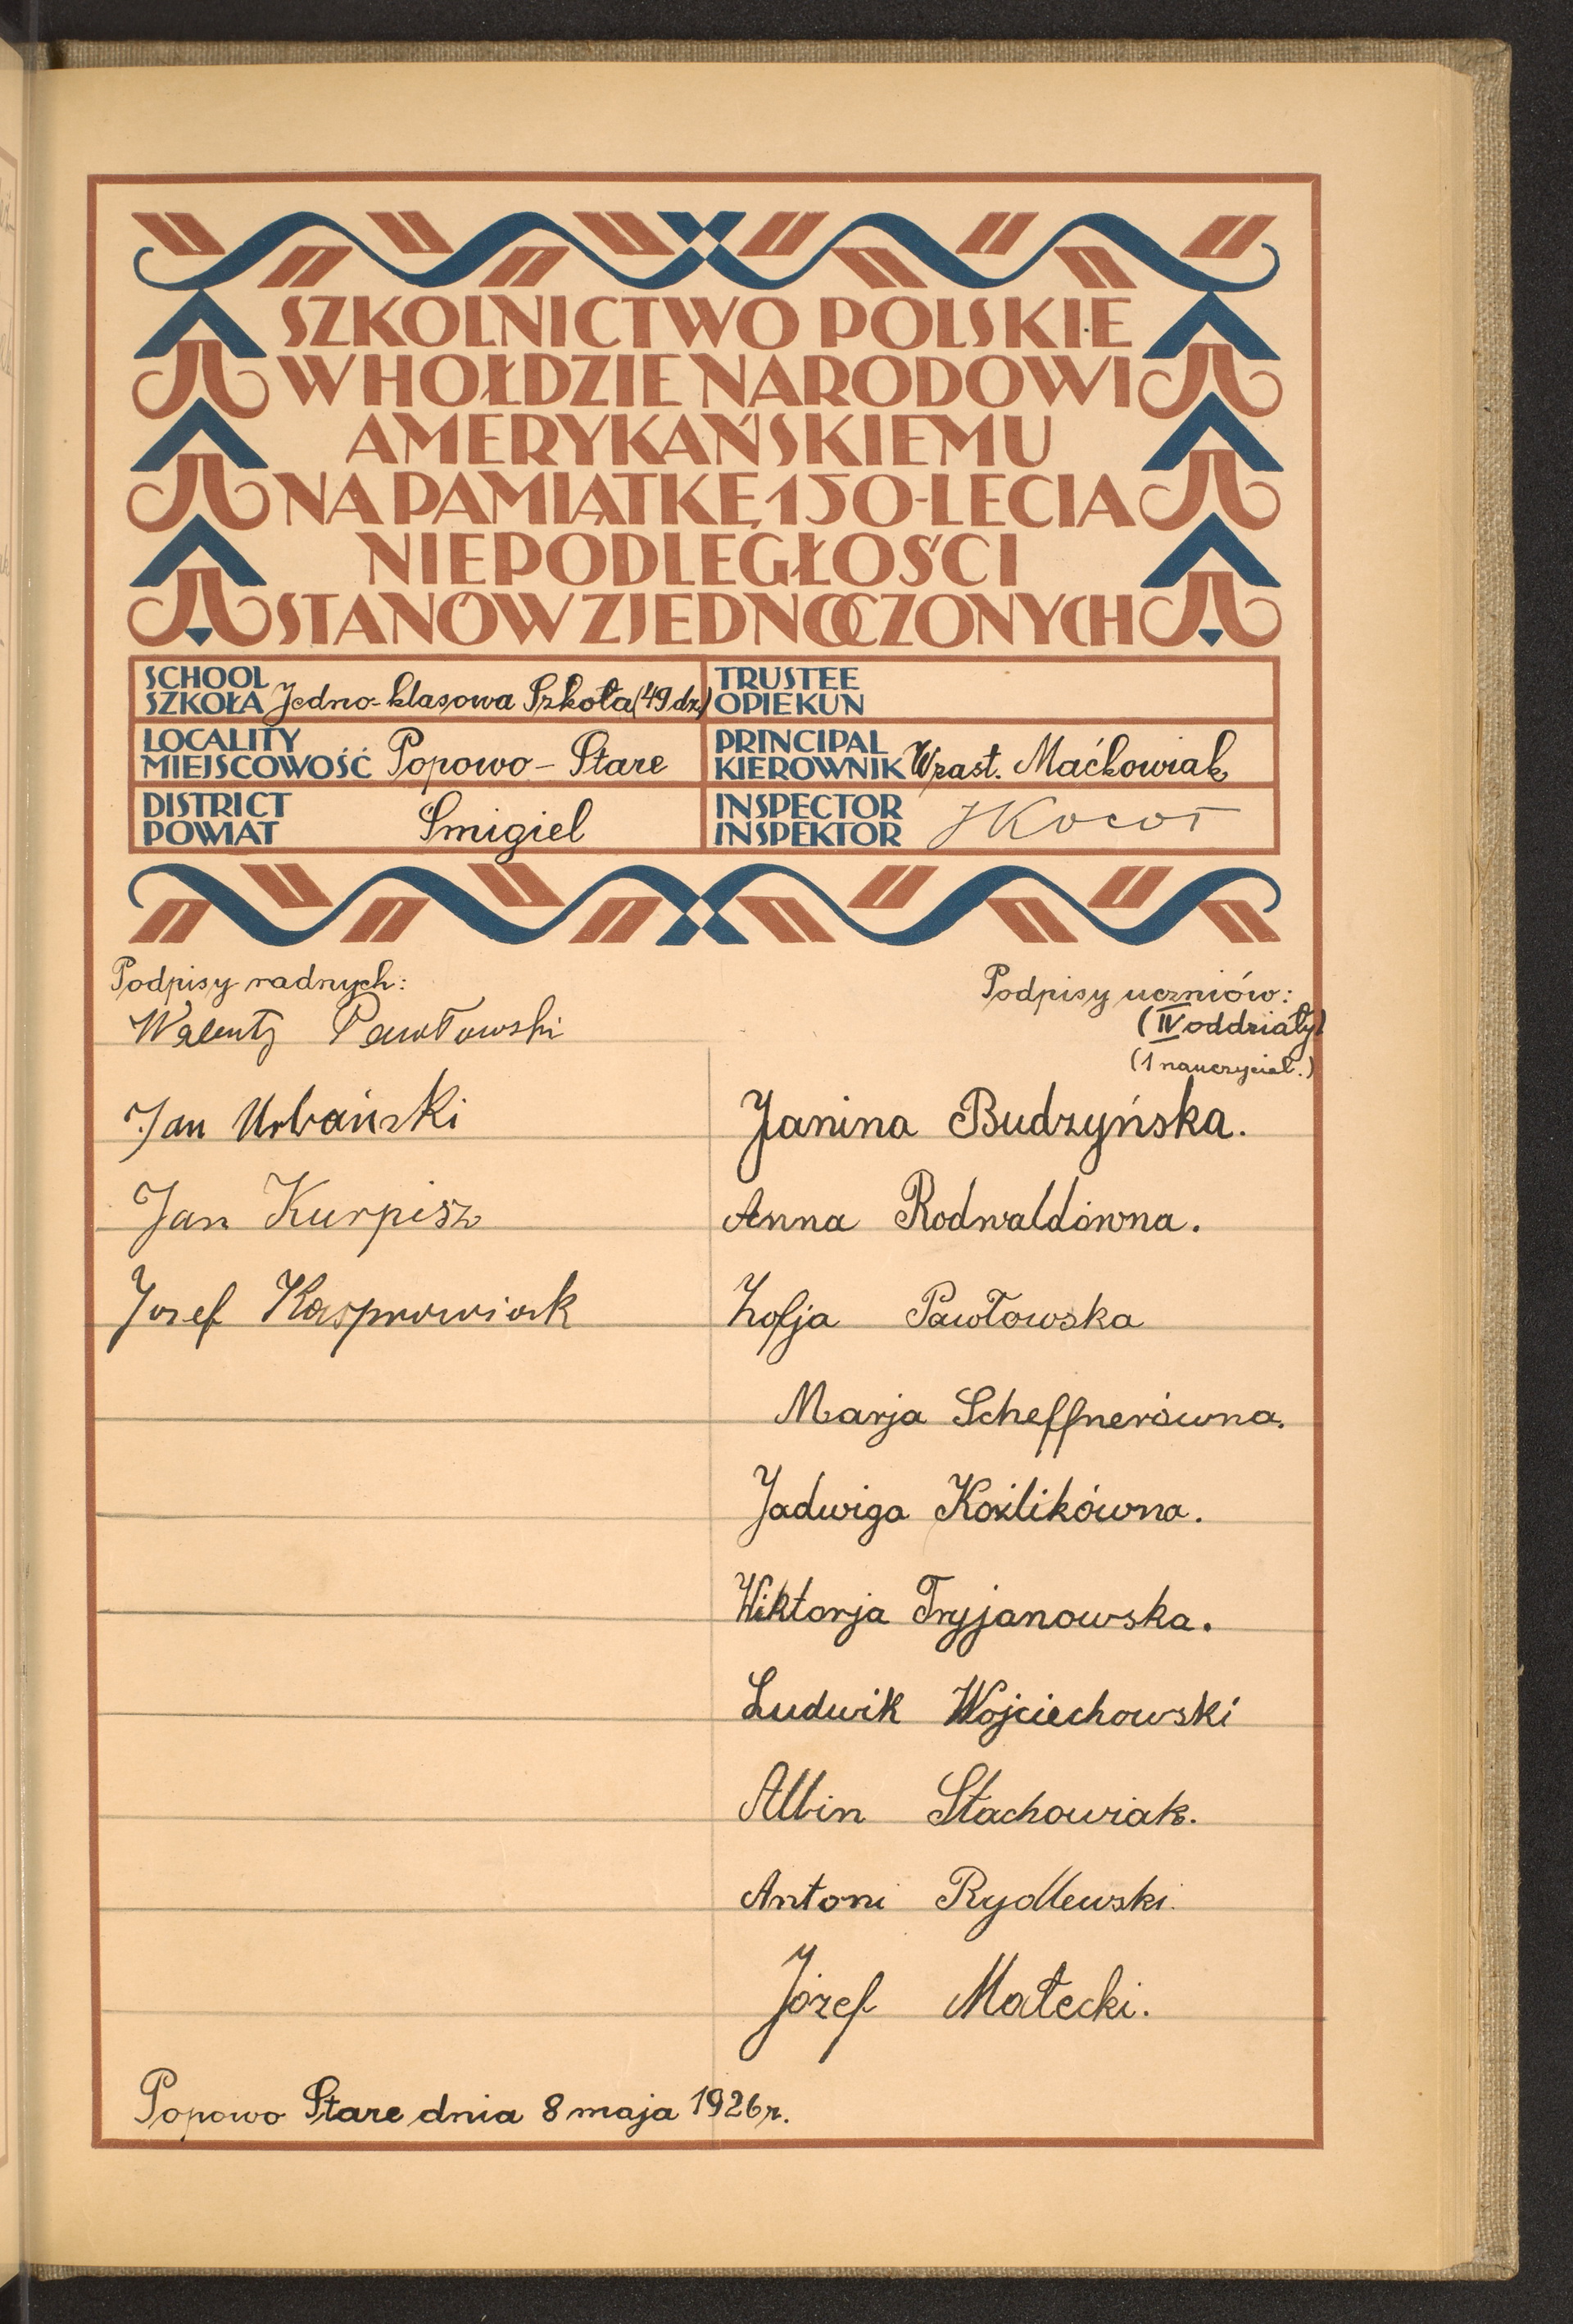 SZKOLNICTWO POLSKIE
W HOŁDZIE NARODOWI
AMERYKAŃSKIEMU
NA PAMIĄTKĘ 150-LECIA
NIEPODLEGŁOŚCI
STANÓW ZJEDNOCZONYCH
SCHOOL
SZKOŁA Jedno-klasowa Szkoła (49 dz.)
TRUSTEE
OPIEKUN
LOCALITY
MIEJSCOWOŚĆ Popowo - Stare
PRINCIPAL
KIEROWNIK W zast. Maćkowiak
DISTRICT
POWIAT Śmigiel
INSPECTOR
INSPEKTOR JKocot
Podpisy radnych:
Walenty Pawłowski
Jan Urbański
Jan Kurpisz
Josef Kasprowiak
Podpisy uczniów:
(IV oddziały)
(1 nauczyciel.)
Janina Budzyńska.
Anna Rodwaldówna.
Zofja Pawłowska
Marja Scheffnerówna.
Jadwiga Koźlikówna.
Wiktorja Tryjanowska.
Ludwik Wojciechowski
Albin Stachowiak.
Antoni Rydlewski.
Józef Małecki.
Popowo Stare dnia 8 maja 1926 r.